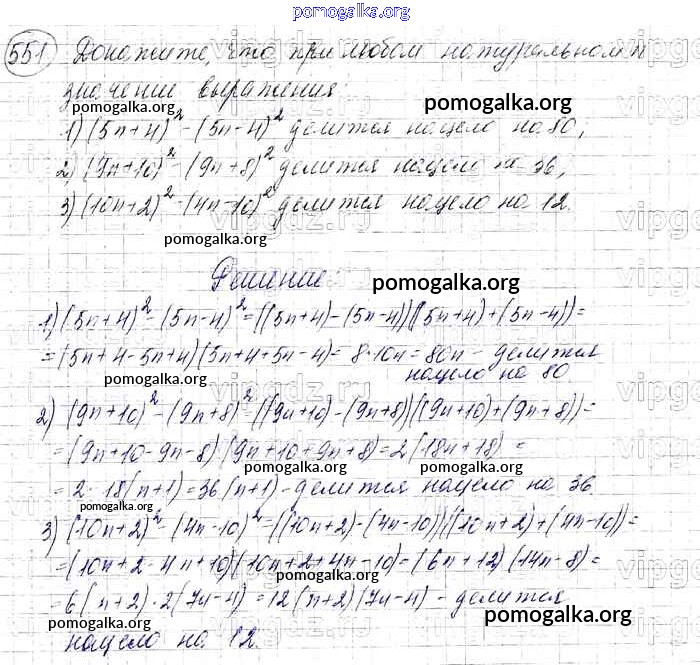 pomogalka.org
551 Докажите, что при любом натуральном n
значение выражения:
pomogalka.org pomogalka.org
1) (5n+4)² - (5n-4)² делится нацело на 80,
2) (9n+10)² - (9n+8)² делится нацело на 36,
3) (10n+2)² - (4n-10)² делится нацело на 12.
pomogalka.org
Решение:
pomogalka.org
1) (5n+4)² - (5n-4)² = ((5n+4)-(5n-4))((5n+4)+(5n-4)) =
= (5n+4-5n+4)(5n+4+5n-4) = 8·10n = 80n - делится
pomogalka.org нацело на 80.
2) (9n+10)² - (9n+8)² = ((9n+10)-(9n+8))((9n+10)+(9n+8)) =
= (9n+10-9n-8)(9n+10+9n+8) = 2(18n+18) =
pomogalka.org pomogalka.org
= 2·18(n+1) = 36(n+1) - делится нацело на 36.
pomogalka.org
3) (10n+2)² - (4n-10)² = ((10n+2)-(4n-10))((10n+2)+(4n-10)) =
= (10n+2-4n+10)(10n+2+4n-10) = (6n+12)(14n-8) =
pomogalka.org
= 6(n+2)·2(7n-4) = 12(n+2)(7n-4) - делится
pomogalka.org
нацело на 12.